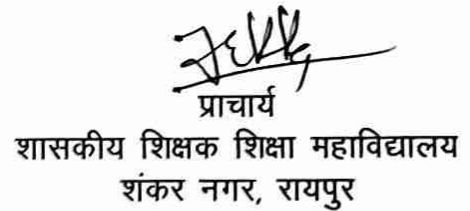 प्राचार्य
शासकीय शिक्षक शिक्षा महाविद्यालय
शंकर नगर, रायपुर